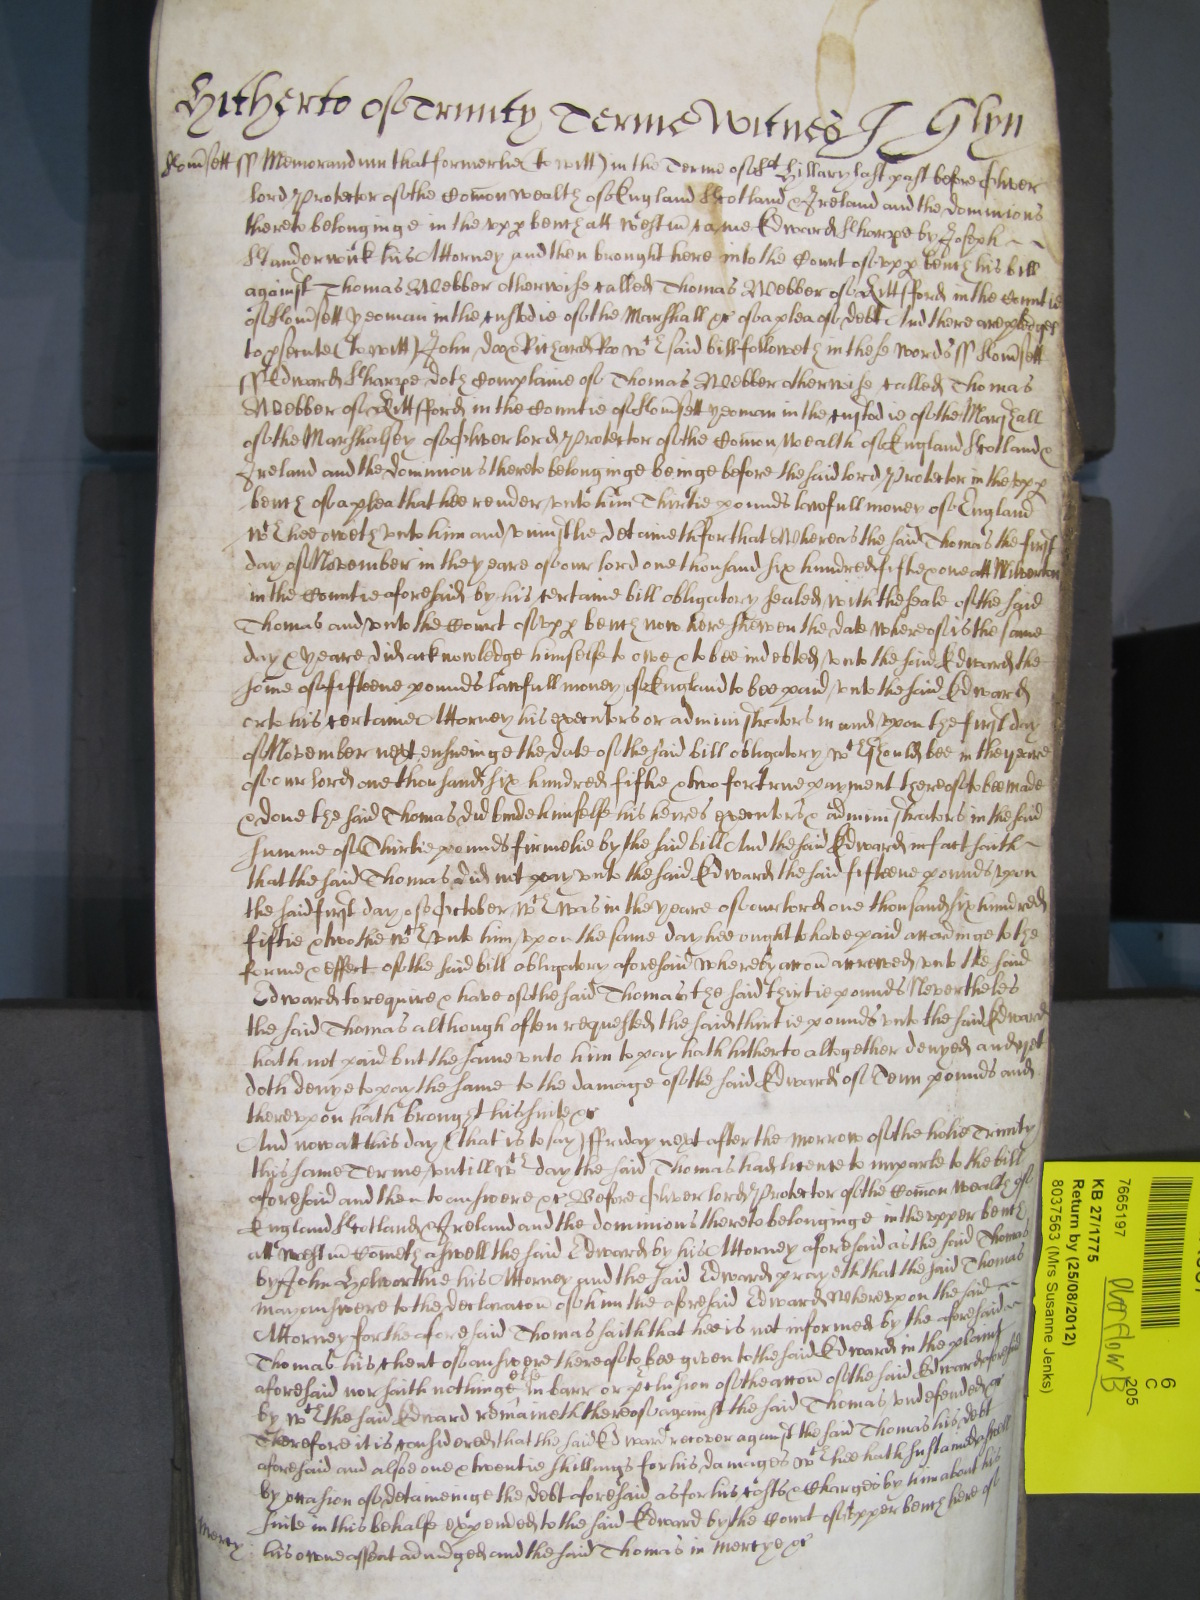 Hitherto of Trinity Terme Witnes J Glyn
Somsett ss Memorandum that formerlie (to witt) in the Terme of St Hillary last past before Oliver
lord Protector of the Comon wealth of England Scotland & Ireland and the dominions
thereto belonginge in the upp bench att westm came Edward Sharpe by Joseph
Standerwick his Attorney and then brought here into the Court of upp bench his bill
against Thomas Webber otherwise called Thomas Webber of Kittsford in the Countie
of Somsett yeoman in the custodie of the Marshall &c of a plea of debt And there are pledges
to psecute (to witt) John doo & Richard Roo wch said bill followeth in these words ss Somsett
ss Edward Sharpe doth Complaine of Thomas Webber otherwise called Thomas
Webber of Kittsford in the Countie of Somsett yeoman in the custodie of the Marshall
of the Marshalsey of Oliver lord Protector of the Comon wealth of England Scotland &
Ireland and the dominions thereto belonginge beinge before the said lord Protector in the upp
bench of a plea that hee render unto him Thirtie pounds lawfull money of England
wch hee oweth unto him and uniustlie detaineth for that Whereas the said Thomas the first
day of November in the yeare of our lord one thousand six hundred fiftie & one att Milverton
in the Countie aforesaid by his certaine bill obligatory sealed with the seale of the said
Thomas and unto the Court of upp bench now here shewen the date whereof is the same
day & yeare did acknowledge himselfe to owe & to bee indebted unto the said Edward the
some of fifteene pounds lawfull money of England to bee paid unto the said Edward
or to his certaine Attorney his executors or administrators in and upon the first day
of November next ensueinge the date of the said bill obligatory wch should bee in the yeare
of our lord one thousand six hundred fiftie & two for true payment thereof to bee made
& done the said Thomas did binde himselfe his heires executors & administrators in the said
summe of Thirtie pounds firmelie by the said bill And the said Edward in fact saith
that the said Thomas did not pay unto the said Edward the said fifteene pounds upon
the said first day of October wch was in the yeare of our lord one thousand six hundred
fiftie & two the wch unto him upon the same day hee ought to have paid accordinge to the
forme & effect of the said bill obligatory aforesaid whereby accon accrewed unto the said
Edward to require & have of the said Thomas the said thirtie pounds Nevertheles
the said Thomas although often requested the said thirtie pounds unto the said Edward
hath not paid but the same unto him to pay hath hitherto altogether denyed and yet
doth denye to pay the same to the damage of the said Edward of Tenn pounds and
thereupon hath brought his suite &c
And now att this day (that is to say) ffriday next after the morrow of the holie Trinity
this same Terme untill wch day the said Thomas had licence to imparle to the bill
aforesaid and then to answere &c Before Oliver lord Protector of the Comon wealth of
England Scotland & Ireland and the dominions thereto belonginge in the upper bench
att westm Cometh aswell the said Edward by his Attorney aforesaid as the said Thomas
by John Holworthie his Attorney and the said Edward prayeth that the said Thomas
may answere to the declaracon of him the aforesaid Edward Whereupon the said
Attorney for the aforesaid Thomas saith that hee is not informed by the aforesaid
Thomas his client of answere thereof to bee given to the said Edward in the plaint
aforesaid nor saith nothinge else in barr or pclusion of the accon of the said Edward aforesaid
by wch the said Edward remaineth thereof against the said Thomas undefended &c
Therefore it is considered that the said Edward recover against the said Thomas his debt
aforesaid and alsoe one & twentie shillings for his damages wch hee hath sustained aswell
by occasion of detaineinge the debt aforesaid as for his costs & charges by him about his
suite in this behalfe expended to the said Edward by the Court of upper bench here of
mercy his owne assent adiudged and the said Thomas in mercye &c
7665197
KB 27/1775
Return by (25/08/2012)
8037563 (Mrs Susanne Jenks)
6
C
205